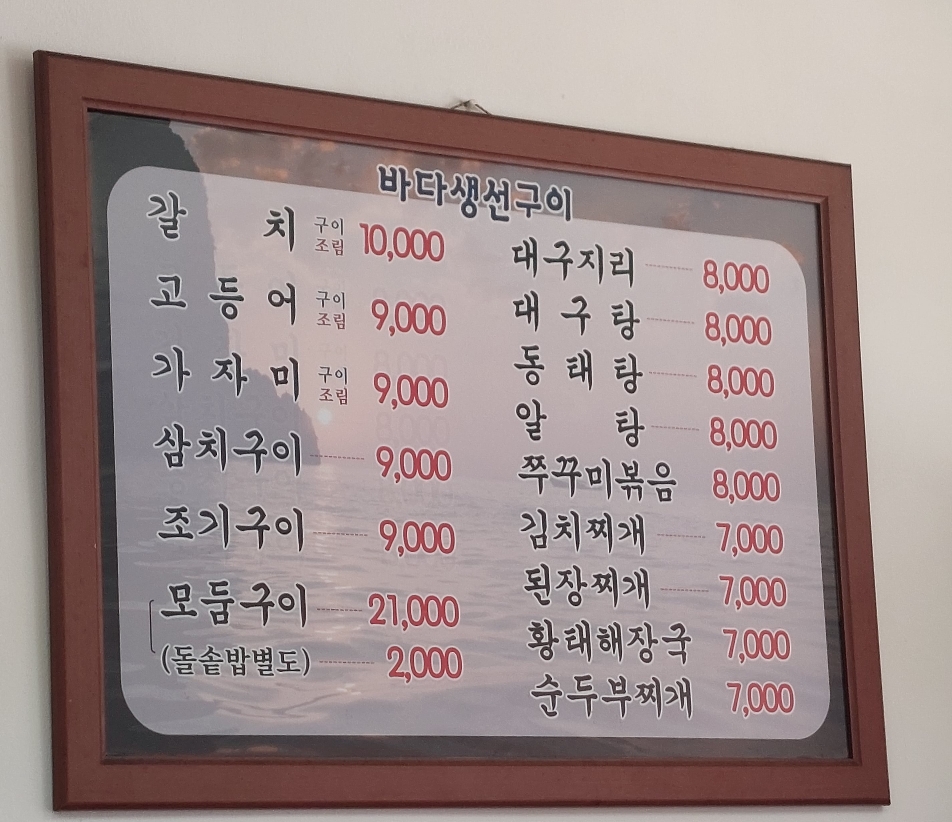 바다생선구이
갈치 구이 조림 10,000
고등어 구이 조림 9,000
가자미 구이 조림 9,000
삼치구이 9,000
조기구이 9,000
모둠구이 21,000
(돌솥밥별도) 2,000
대구지리 8,000
대구탕 8,000
동태탕 8,000
알탕 8,000
쭈꾸미볶음 8,000
김치찌개 7,000
된장찌개 7,000
황태해장국 7,000
순두부찌개 7,000